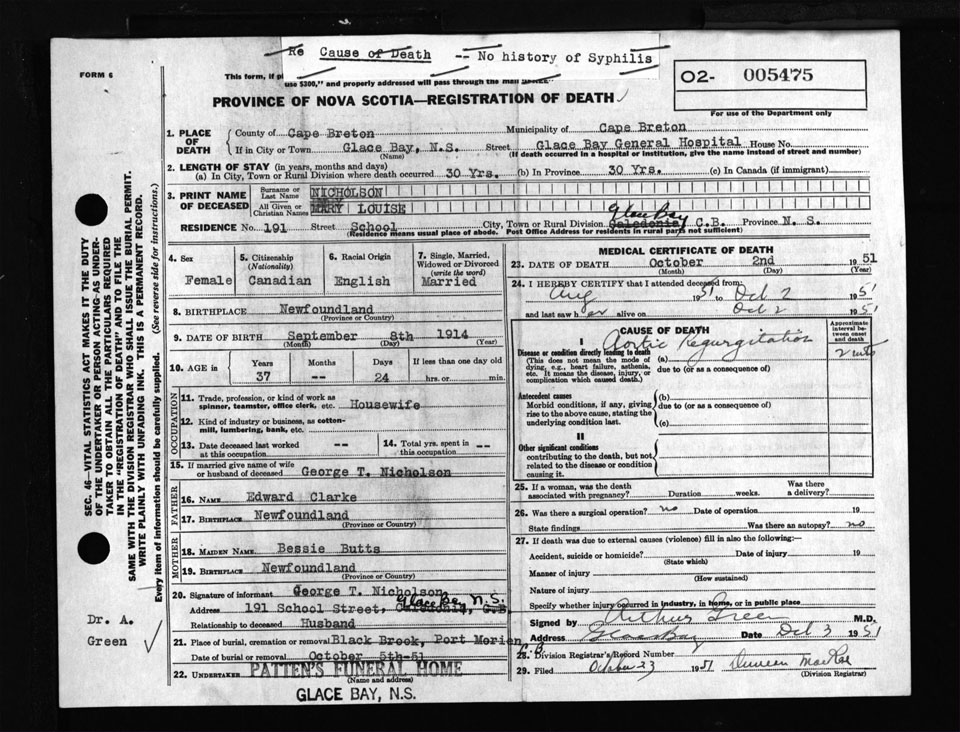 Re Cause of Death -- No history of Syphilis
FORM 6
This form, if pl
use $300," and properly addressed will pass through the mail
O2- 005475
For use of the Department only
PROVINCE OF NOVA SCOTIA—REGISTRATION OF DEATH
1. PLACE OF DEATH
County of Cape Breton Municipality of Cape Breton
If in City or Town Glace Bay, N.S. Street Glace Bay General Hospital House No.
(Name) (If death occurred in a hospital or institution, give the name instead of street and number)
2. LENGTH OF STAY (in years, months and days)
(a) In City, Town or Rural Division where death occurred 30 Yrs. (b) In Province 30 Yrs. (c) In Canada (if immigrant)
3. PRINT NAME OF DECEASED
Surname or Last Name NICHOLSON
All Given or Christian Names MARY LOUISE
Glace Bay
RESIDENCE No. 191 Street School City, Town or Rural Division Caledonia, C.B. Province N. S.
(Residence means usual place of abode. Post Office Address for residents in rural parts not sufficient)
4. Sex Female
5. Citizenship (Nationality) Canadian
6. Racial Origin English
7. Single, Married, Widowed or Divorced (write the word) Married
8. BIRTHPLACE Newfoundland
(Province or Country)
9. DATE OF BIRTH September 8th 1914
(Month) (Day) (Year)
10. AGE in Years Months Days If less than one day old
37 -- 24 hrs. or min.
OCCUPATION
11. Trade, profession, or kind of work as spinner, teamster, office clerk, etc. Housewife
12. Kind of industry or business, as cotton-mill, lumbering, bank, etc.
13. Date deceased last worked at this occupation --
14. Total yrs. spent in this occupation --
15. If married give name of wife or husband of deceased George T. Nicholson
FATHER
16. NAME Edward Clarke
17. BIRTHPLACE Newfoundland
(Province or Country)
MOTHER
18. MAIDEN NAME Bessie Butts
19. BIRTHPLACE Newfoundland
(Province or Country)
20. Signature of informant George T. Nicholson
Glace Bay N.S.
Address 191 School Street, Caledonia, C.B.
Relationship to deceased Husband
21. Place of burial, cremation or removal Black Brook, Port Morien, C.B.
Date of burial or removal October 5th-51
22. UNDERTAKER PATTEN'S FUNERAL HOME
(Name and address)
GLACE BAY, N.S.
MEDICAL CERTIFICATE OF DEATH
23. DATE OF DEATH October 2nd 1951
(Month) (Day) (Year)
24. I HEREBY CERTIFY that I attended deceased from:
Aug 1951 to Oct 2 1951
and last saw her alive on Oct 2 1951
CAUSE OF DEATH
Approximate interval between onset and death
I
Disease or condition directly leading to death (a) Aortic Regurgitation
(This does not mean the mode of dying, e.g., heart failure, asthenia, etc. It means the disease, injury, or complication which caused death.)
due to (or as a consequence of)
Antecedent causes
Morbid conditions, if any, giving rise to the above cause, stating the underlying condition last.
(b)
due to (or as a consequence of)
(c)
II
Other significant conditions
contributing to the death, but not related to the disease or condition causing it.
25. If a woman, was the death associated with pregnancy? Duration weeks. Was there a delivery?
26. Was there a surgical operation? no Date of operation 19
State findings Was there an autopsy? no
27. If death was due to external causes (violence) fill in also the following:—
Accident, suicide or homicide? Date of injury 19
(State which)
Manner of injury
(How sustained)
Nature of injury
Specify whether injury occurred in industry, in home, or in public place
Signed by Arthur Green M.D.
Address Glace Bay Date Oct 3 1951
28. Division Registrar's Record Number
29. Filed October 23 1951
(Division Registrar)
SEC. 46—VITAL STATISTICS ACT MAKES IT THE DUTY
OF THE UNDERTAKER OR PERSON ACTING AS UNDER-
TAKER TO OBTAIN ALL THE PARTICULARS REQUIRED
IN THE "REGISTRATION OF DEATH" AND TO FILE THE
SAME WITH THE DIVISION REGISTRAR WHO SHALL ISSUE THE BURIAL PERMIT.
WRITE PLAINLY WITH UNFADING INK. THIS IS A PERMANENT RECORD.
Every item of information should be carefully supplied. (See reverse side for instructions.)
Dr. A.
Green